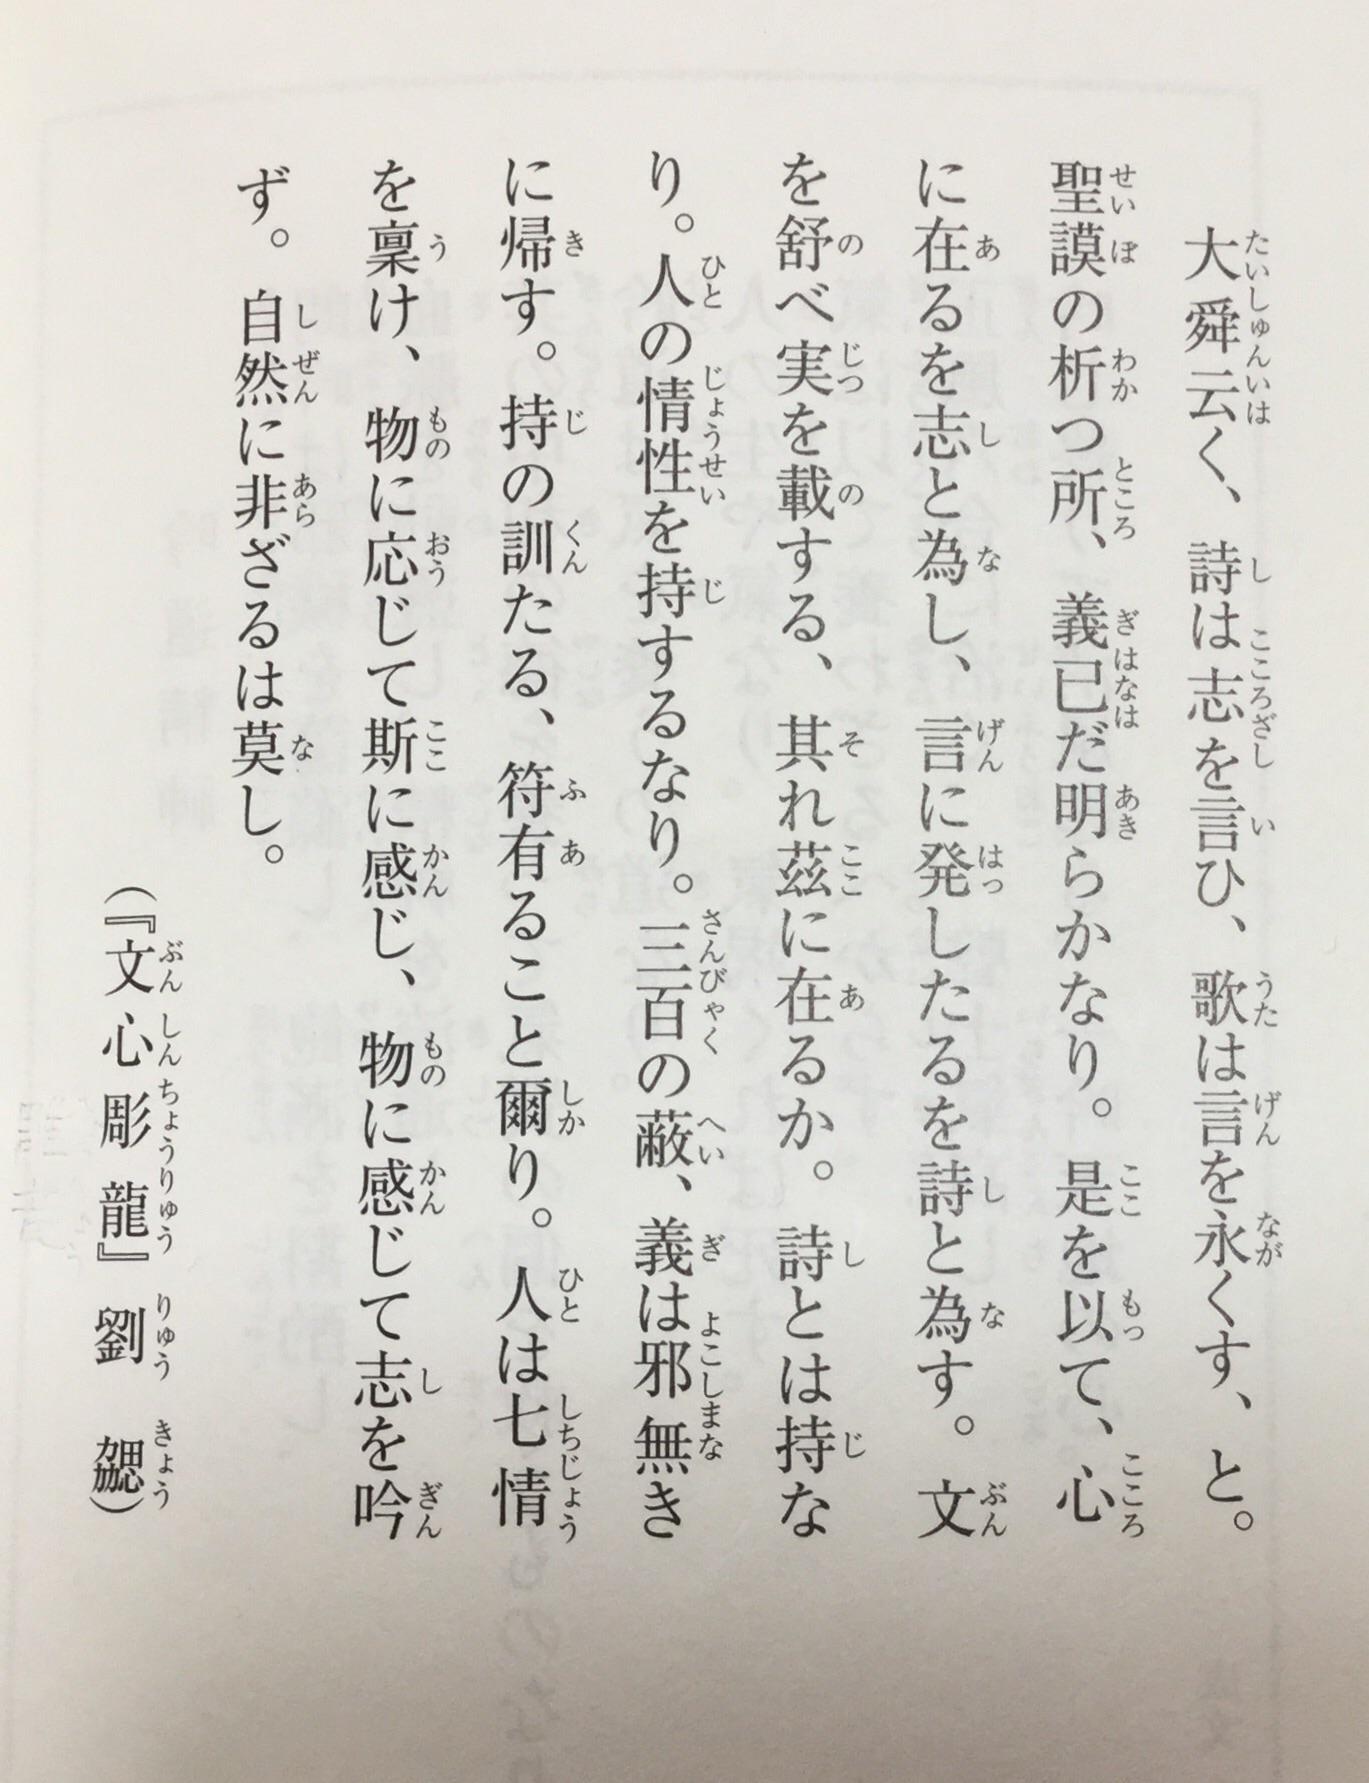 大舜云く、詩は志を言ひ、歌は言を永くす、と。
聖謨の析つ所、義已だ明らかなり。是を以て、心
に在るを志と為し、言に発したるを詩と為す。文
を舒べ実を載する、其れ茲に在るか。詩とは持な
り。人の情性を持するなり。三百の蔽、義は邪無き
に帰す。持の訓たる、符有ること爾り。人は七情
を稟け、物に応じて斯に感じ、物に感じて志を吟
ず。自然に非ざるは莫し。
(『文心彫龍』劉勰)